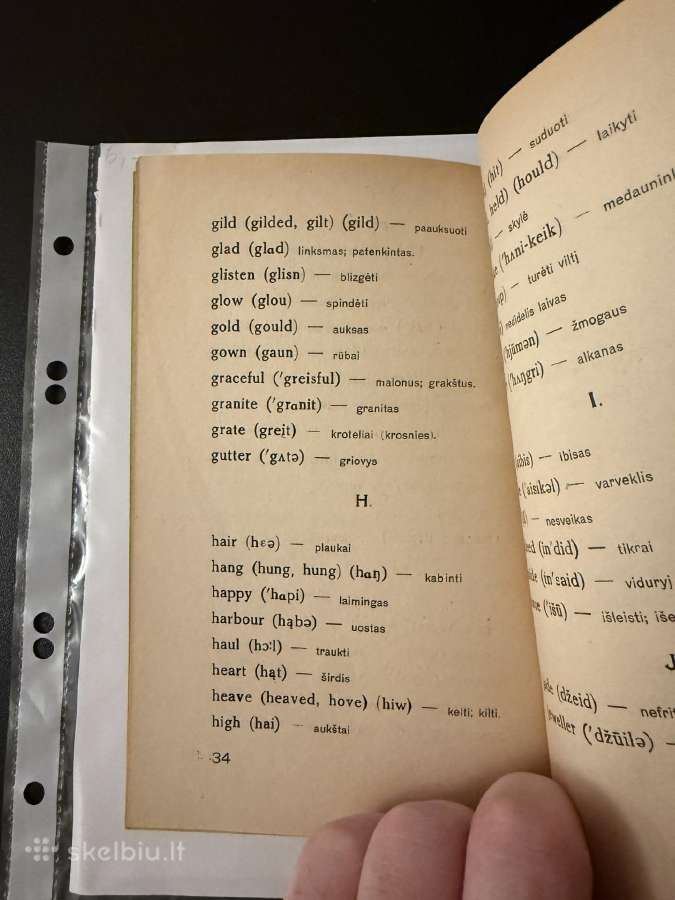 gild (gilded, gilt) (gild) — paauksuoti
glad (glɑd) linksmas; patenkintas.
glisten (glisn) — blizgėti
glow (glou) — spindėti
gold (gould) — auksas
gown (gaun) — rūbai
graceful ('greisful) — malonus; grakštus.
granite ('grɑnit) — granitas
grate (greit) — kroteliai (krosnies).
gutter ('gʌtə) — griovys
H.
hair (hɛə) — plaukai
hang (hung, hung) (hɑŋ) — kabinti
happy ('hɑpi) — laimingas
harbour (hąbə) — uostas
haul (hɔ:l) — traukti
heart (hąt) — širdis
heave (heaved, hove) (hiw) — kelti; kilti.
high (hai) — aukštai
34
(hit) — suduoti
held) (hould) — laikyti
— skylė
('hʌni-keik) — medaunink
— turėti viltį
nedidelis laivas
'hjūmən) — žmogaus
('hʌŋgri) — alkanas
I.
— ibisas
('aisikəl) — varveklis
— nesveikas
(in'did) — tikrai
(in'said) — viduryj
('išū) — išleisti; iše
J
(džeid) — nefrit
('džūilə) —
skelbiu.lt